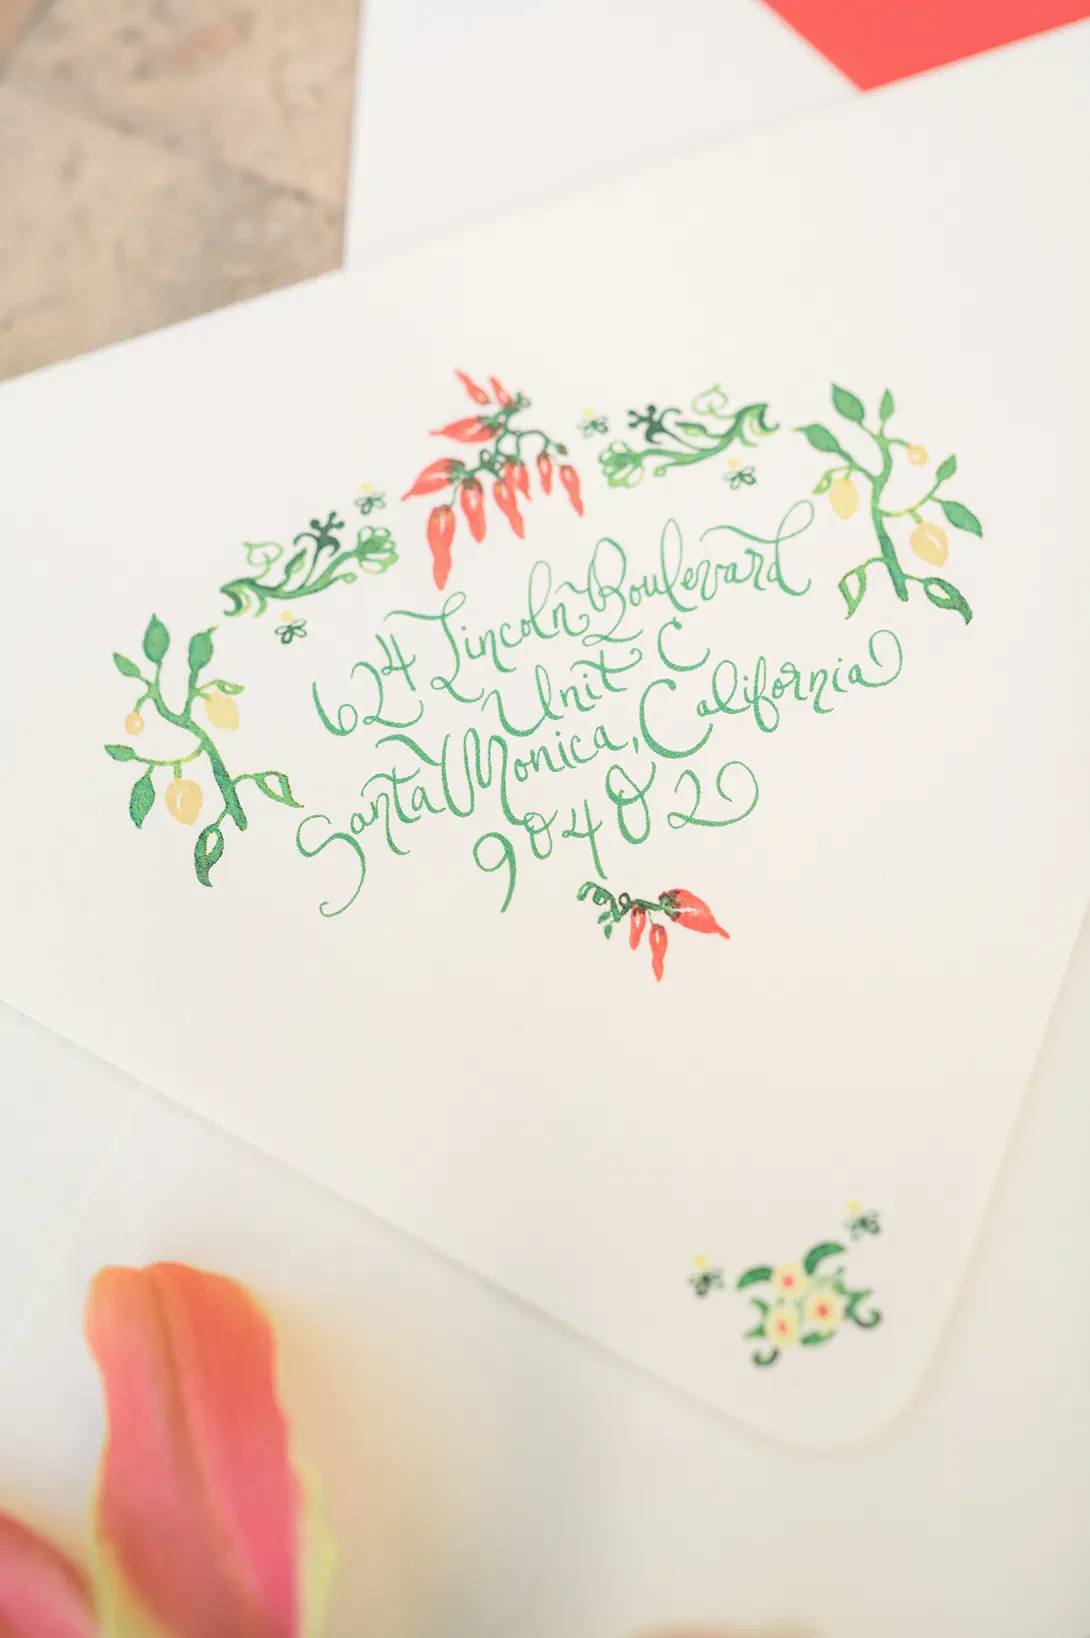 624 Lincoln Boulevard
Unit C
Santa Monica, California
90402